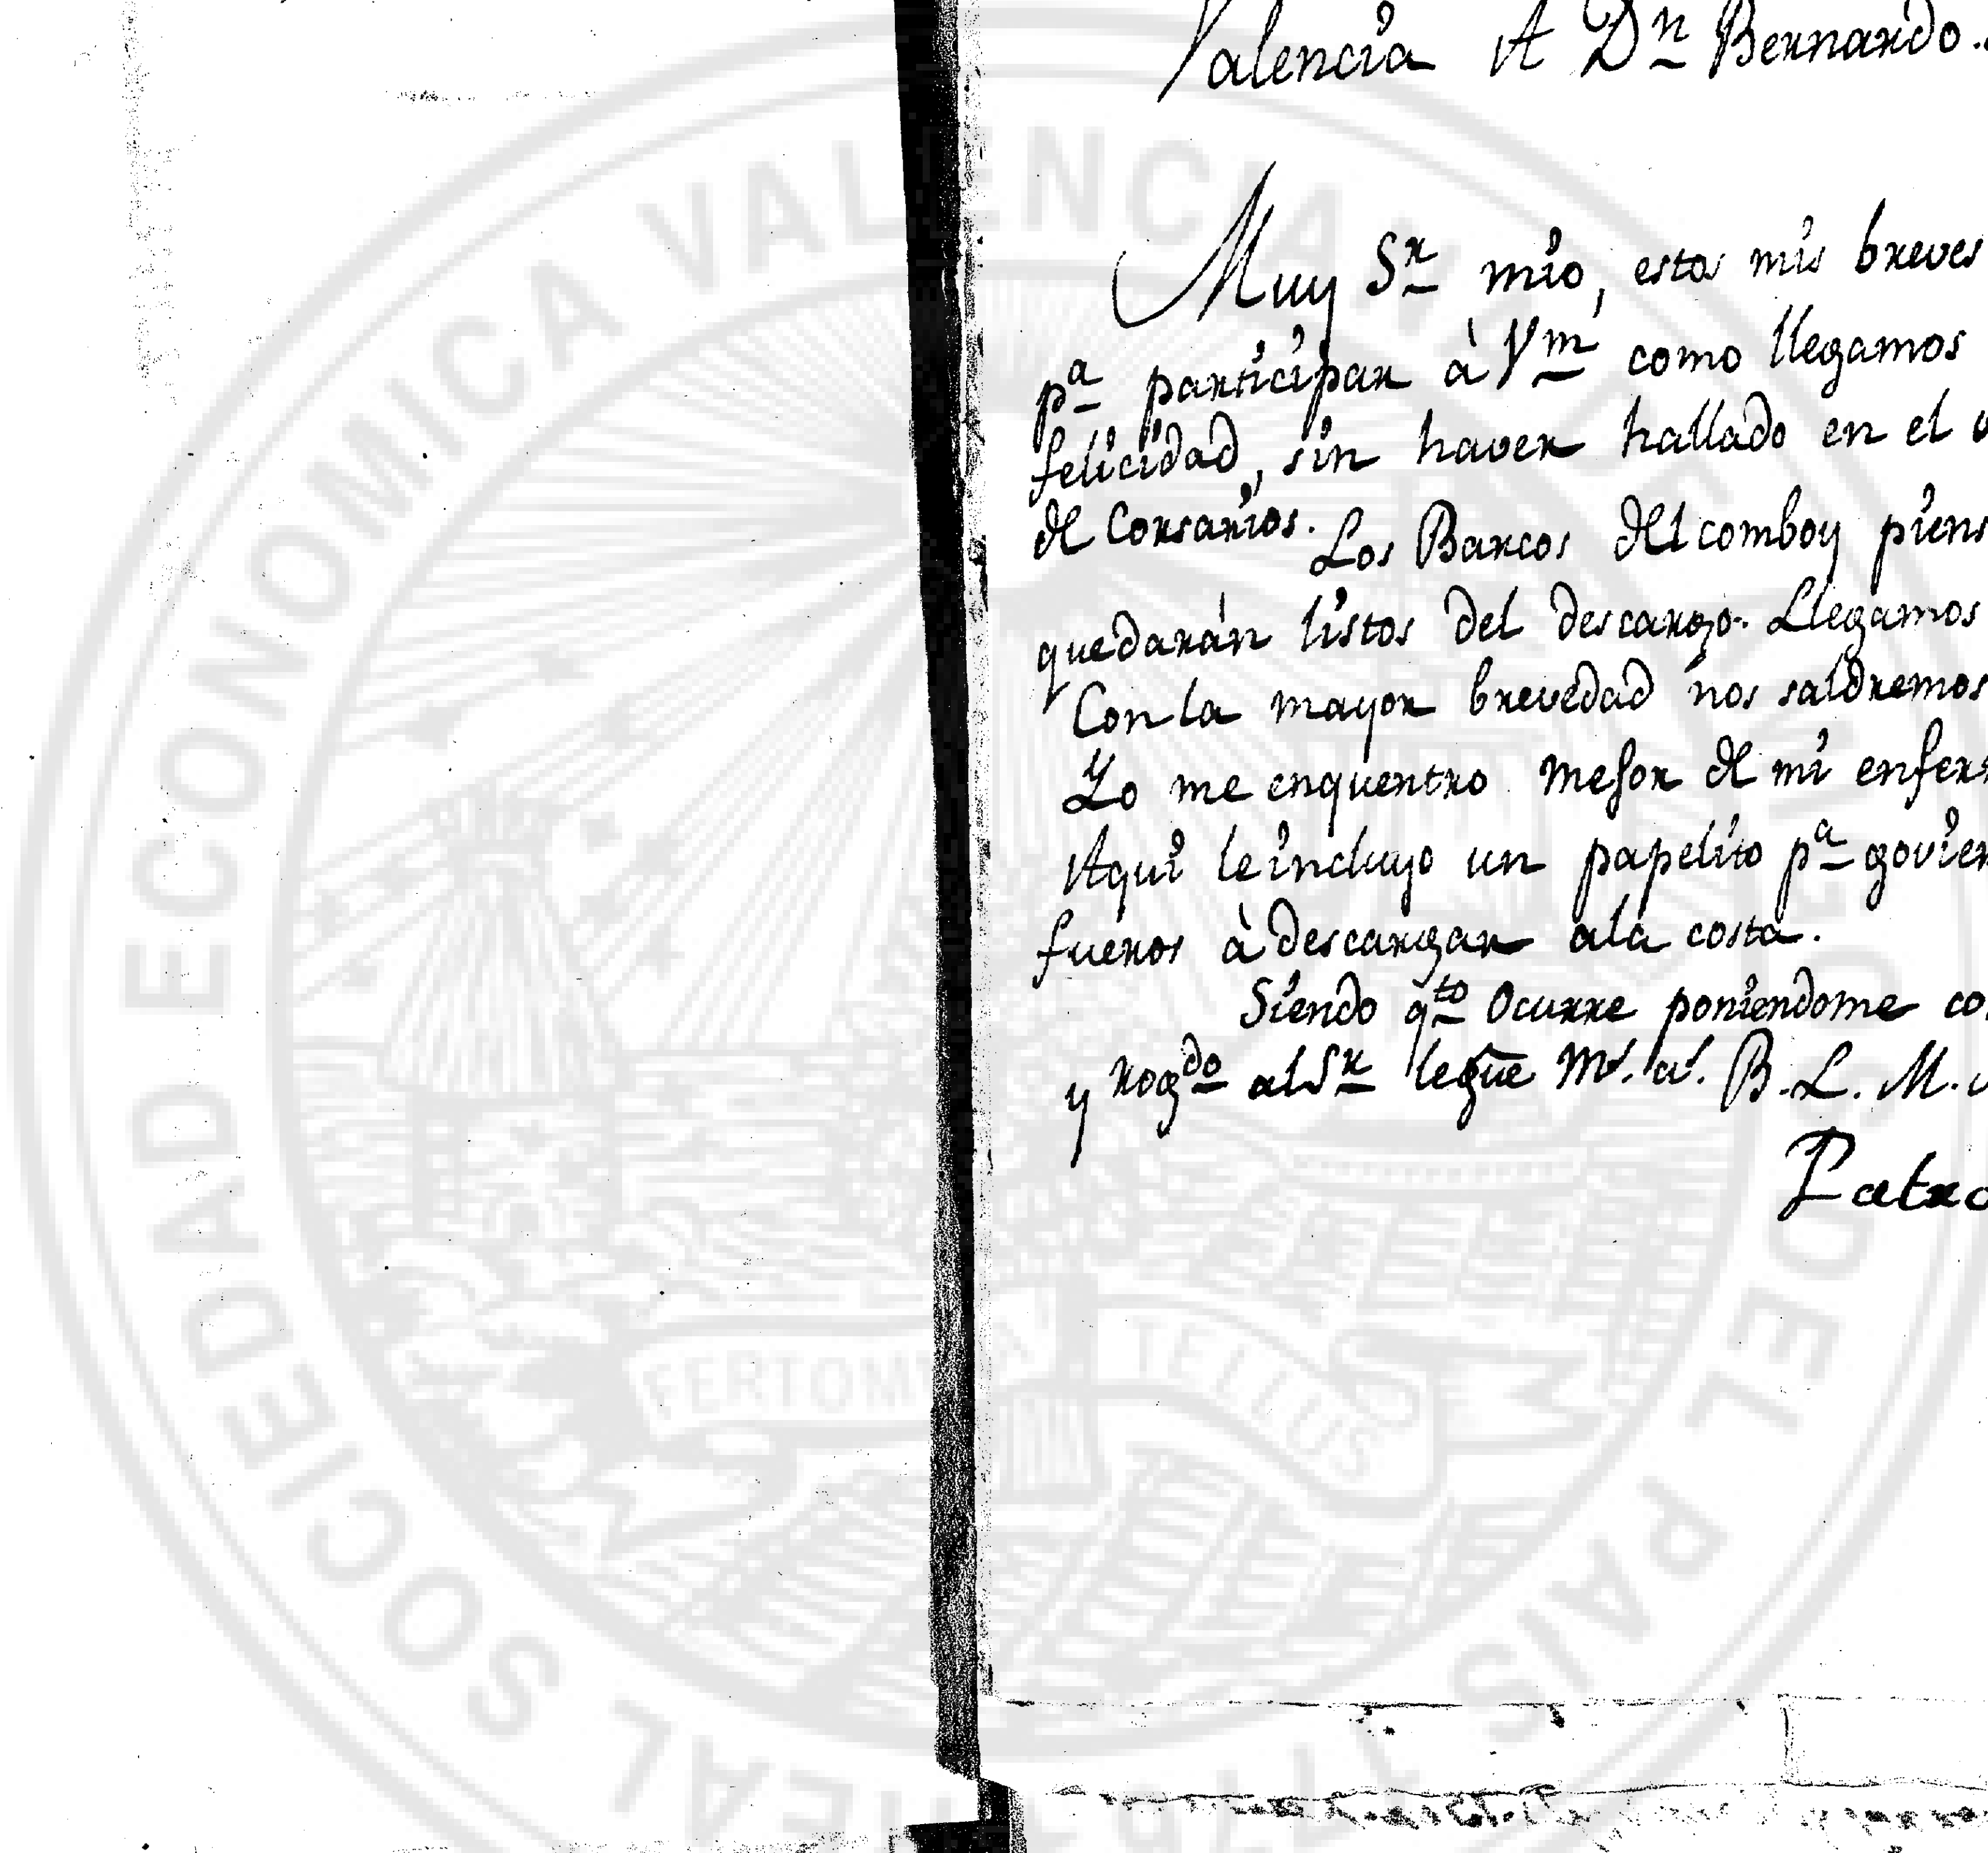 Valencia A Dn Bernardo.
Muy Sr mio, estos mis breves
pa participar à Vm como llegamos
felicidad, sin haver hallado en el
de Corsarios. Los Barcos del comboy piens
quedarán listos del descargo. Llegamos
Con la mayor brevedad nos saldremos
Yo me enquentro mejor de mi enfer
Aqui le incluyo un papelito pa govier
fueros à descargar ala costa.
Siendo qto Ocurre poniendome co
y rogdo al Sr le gue Ms. as. B. L. M.
Patro
REAL SOCIEDAD ECONOMICA VALENCIANA DE AMIGOS DEL PAIS
FERTONI TELLUS